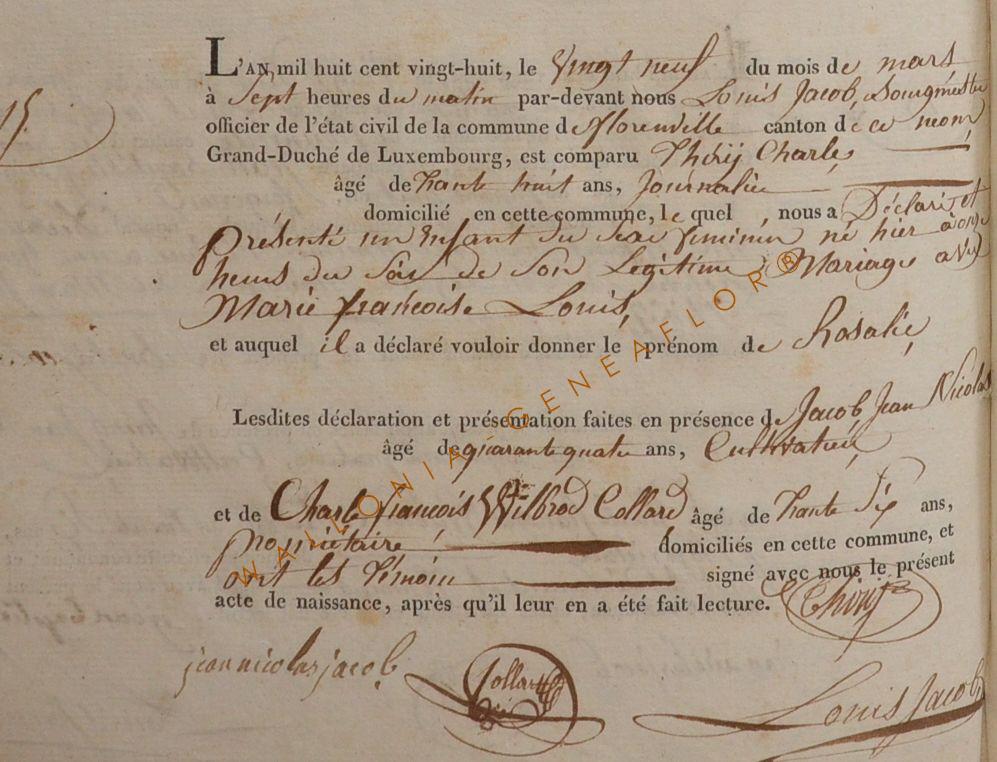 15.
L'AN mil huit cent vingt-huit, le Vingt neuf du mois de mars
à Sept heures du matin par-devant nous Louis Jacob, Bourgmestre
officier de l'état civil de la commune de florenville canton de ce nom
Grand-Duché de Luxembourg, est comparu Thiry Charle,
âgé de trante huit ans, Journalie
domicilié en cette commune, le quel nous a Déclaré et
présenté un Enfant du sexe feminin né hier à onze
heurs du Soir de Son Legitime Mariage avec
Marie françoise Louis,
et auquel il a déclaré vouloir donner le prénom de Rosalie,
Lesdites déclaration et présentation faites en présence de Jacob Jean Nicolas
âgé de quarante quatre ans, Cultivateur,
et de Charle francois Wilbrod Collard âgé de trante Six ans,
propriétaire domiciliés en cette commune, et
ont les témoin signé avec nous le présent
acte de naissance, après qu'il leur en a été fait lecture. Thiry
jean nicolas jacob Collard Louis Jacob
WALLONIA-GENEAFLOR®